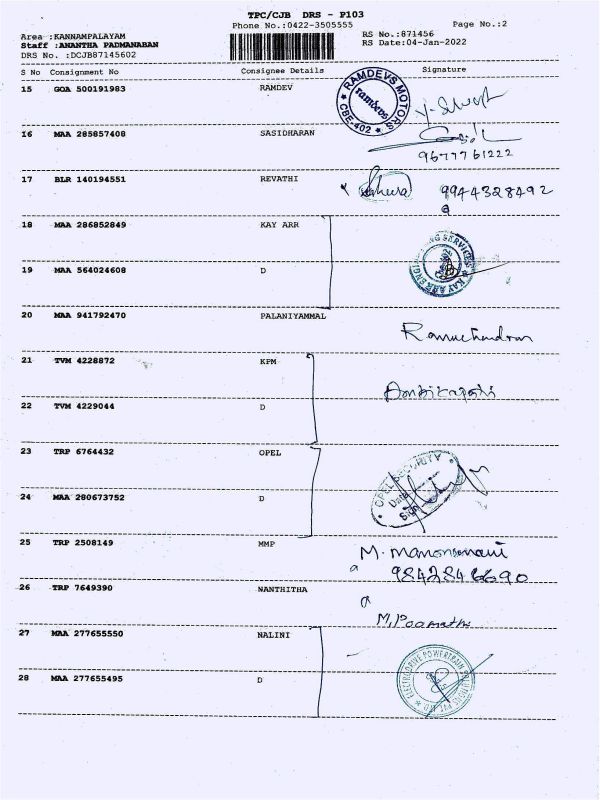 TPC/CJB DRS - P103
Phone No.:0422-3505555 Page No.:2
Area :KANNAMPALAYAM RS No.:871456
Staff :ANANTHA PADMANABAN RS Date:04-Jan-2022
DRS No. :DCJB87145602
S No Consignment No Consignee Details Signature
15 GOA 500191983 RAMDEV
RAMDEVS MOTORS
ramdevs
CBE-402
16 MAA 285857408 SASIDHARAN
9677761222
17 BLR 140194551 REVATHI
9944328492
18 MAA 286852849 KAY ARR
KAY ARR ENGINEERING SERVICES
19 MAA 564024608 D
20 MAA 941792470 PALANIYAMMAL
Ramachandran
21 TVM 4228872 KPM
22 TVM 4229044 D
23 TRP 6764432 OPEL
OPEL SECURITY
Date
Sign
24 MAA 280673752 D
25 TRP 2508149 MMP
M. Manonmani
9842846690
26 TRP 7649390 NANTHITHA
27 MAA 277655550 NALINI
ELECTRODRIVE POWERTRAIN SOLUTIONS PVT LTD
28 MAA 277655495 D